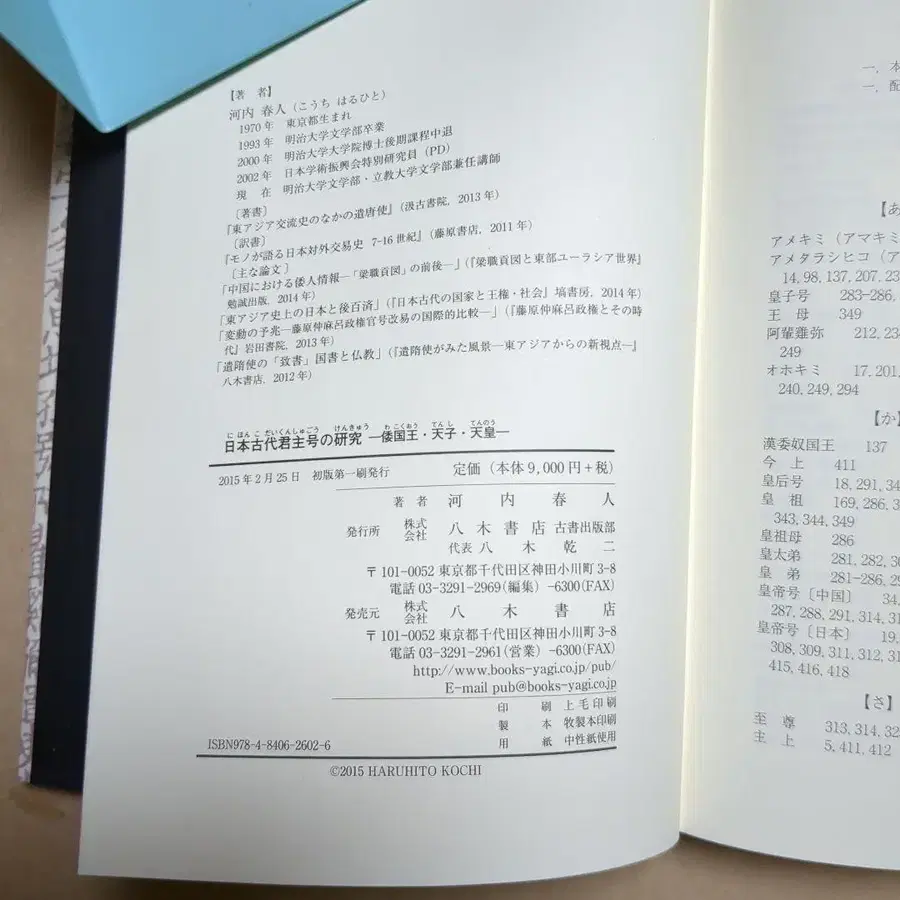 【著 者】
河内 春人（こうち はるひと）
1970年 東京都生まれ
1993年 明治大学文学部卒業
2000年 明治大学大学院博士後期課程中退
2002年 日本学術振興会特別研究員（PD）
現 在 明治大学文学部・立教大学文学部兼任講師
〔著書〕
『東アジア交流史のなかの遣唐使』（汲古書院, 2013年）
〔訳書〕
『モノが語る日本対外交易史 7-16世紀』（藤原書店, 2011年）
〔主な論文〕
「中国における倭人情報―「梁職貢図」の前後―」（『梁職貢図と東部ユーラシア世界』
勉誠出版, 2014年）
「東アジア史上の日本と後百済」（『日本古代の国家と王権・社会』塙書房, 2014年）
「変動の予兆―藤原仲麻呂政権官号改易の国際的比較―」（『藤原仲麻呂政権とその時
代』岩田書院, 2013年）
「遣隋使の「致書」国書と仏教」（『遣隋使がみた風景―東アジアからの新視点―』
八木書店, 2012年）
に ほん こ だいくんしゅごう けんきゅう わ こくおう てん し てんのう
日本古代君主号の研究 ―倭国王・天子・天皇―
2015年2月25日 初版第一刷発行 定価（本体9,000円+税）
著 者 河 内 春 人
発行所 株式会社 八 木 書 店 古書出版部
代表 八 木 乾 二
〒101-0052 東京都千代田区神田小川町3-8
電話 03-3291-2969(編集) -6300(FAX)
発売元 株式会社 八 木 書 店
〒101-0052 東京都千代田区神田小川町3-8
電話 03-3291-2961(営業) -6300(FAX)
http://www.books-yagi.co.jp/pub/
E-mail pub@books-yagi.co.jp
印 刷 上毛印刷
製 本 牧製本印刷
ISBN978-4-8406-2602-6 用 紙 中性紙使用
©2015 HARUHITO KOCHI
一, 本
一, 配
【あ
アメキミ（アマキミ
アメタラシヒコ（ア
14, 98, 137, 207, 23
皇子号 283-286,
王 母 349
阿輩雞弥 212, 23
249
オホキミ 17, 201,
240, 249, 294
【か】
漢委奴国王 137
今 上 411
皇后号 18, 291, 34
皇 祖 169, 286, 3
343, 344, 349
皇祖母 286
皇太弟 281, 282, 30
皇 弟 281-286, 29
皇帝号〔中国〕 34,
287, 288, 291, 314, 31
皇帝号〔日本〕 19,
308, 309, 311, 312, 31
415, 416, 418
【さ】
至 尊 313, 314, 32
主 上 5, 411, 412